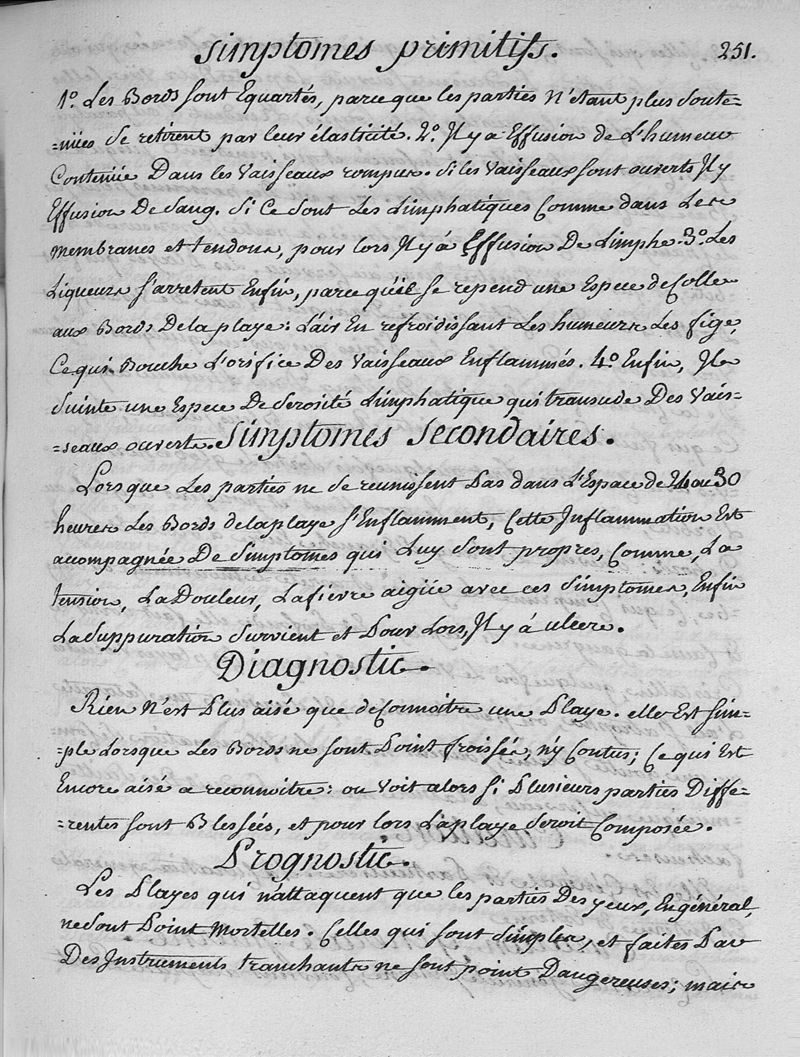 Simptomes primitifs. 251.
1.º Les Bords sont Equartés, parce que les parties N'étant plus soute=
=nües se retirent par leur élasticité. 2.º Il y a Effusion de L'humeur
Contenüe Dans les Vaisseaux rompus. Si les Vaisseaux sont ouverts Il y
Effusion De Sang. Si Ce sont Les Limphatiques Comme dans Les
membranes et tendons, pour lors Il y á Effusion De Limphe. 3.º Les
Liqueurs s'arretent Enfin, parce qu'il se repend une Espece de Colle
aux Bords De la playe: L'air En refroidissant Les humeurs Les fige,
Ce qui Bouche L'orifice Des Vaisseaux Enflammés. 4.º Enfin, Il
Suinte une Espece De Serosité Limphatique qui transude Des Vais=
=seaux ouverts. Simptomes Secondaires.
Lorsque Les parties ne Se reunissent Pas dans L'Espace de 24 ou 30
heures Les Bords de la playe s'Enflamment, Cette Inflammation Est
accompagnée De Simptomes qui Luy Sont propres, Comme, La
tension, La Douleur, La fievre aigüe avec ces Simptomes, Enfin
La Suppuration Survient et Pour Lors, Il y á ulcere.
Diagnostic.
Rien N'est Plus aisé que de Connoitre une Playe. elle Est Sim=
=ple Lorsque Les Bords ne Sont Point froissés, n'y Contus; Ce qui Est
Encore aisé a reconnoitre: on Voit alors Si Plusieurs parties Diffe=
=rentes sont Blessées, et pour lors La playe Seroit Composée.
Prognostic.
Les Playes qui n'attaquent que les parties Des yeux, En général,
ne Sont Point Mortelles. Celles qui sont Simples, et faites Par
Des Instruments tranchants ne sont point Dangereuses; mais